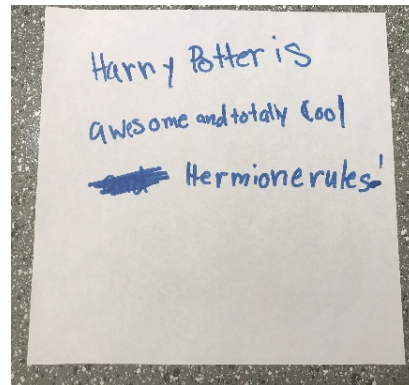 Harry Potter is
awesome and totally Cool
and Hermione rules!